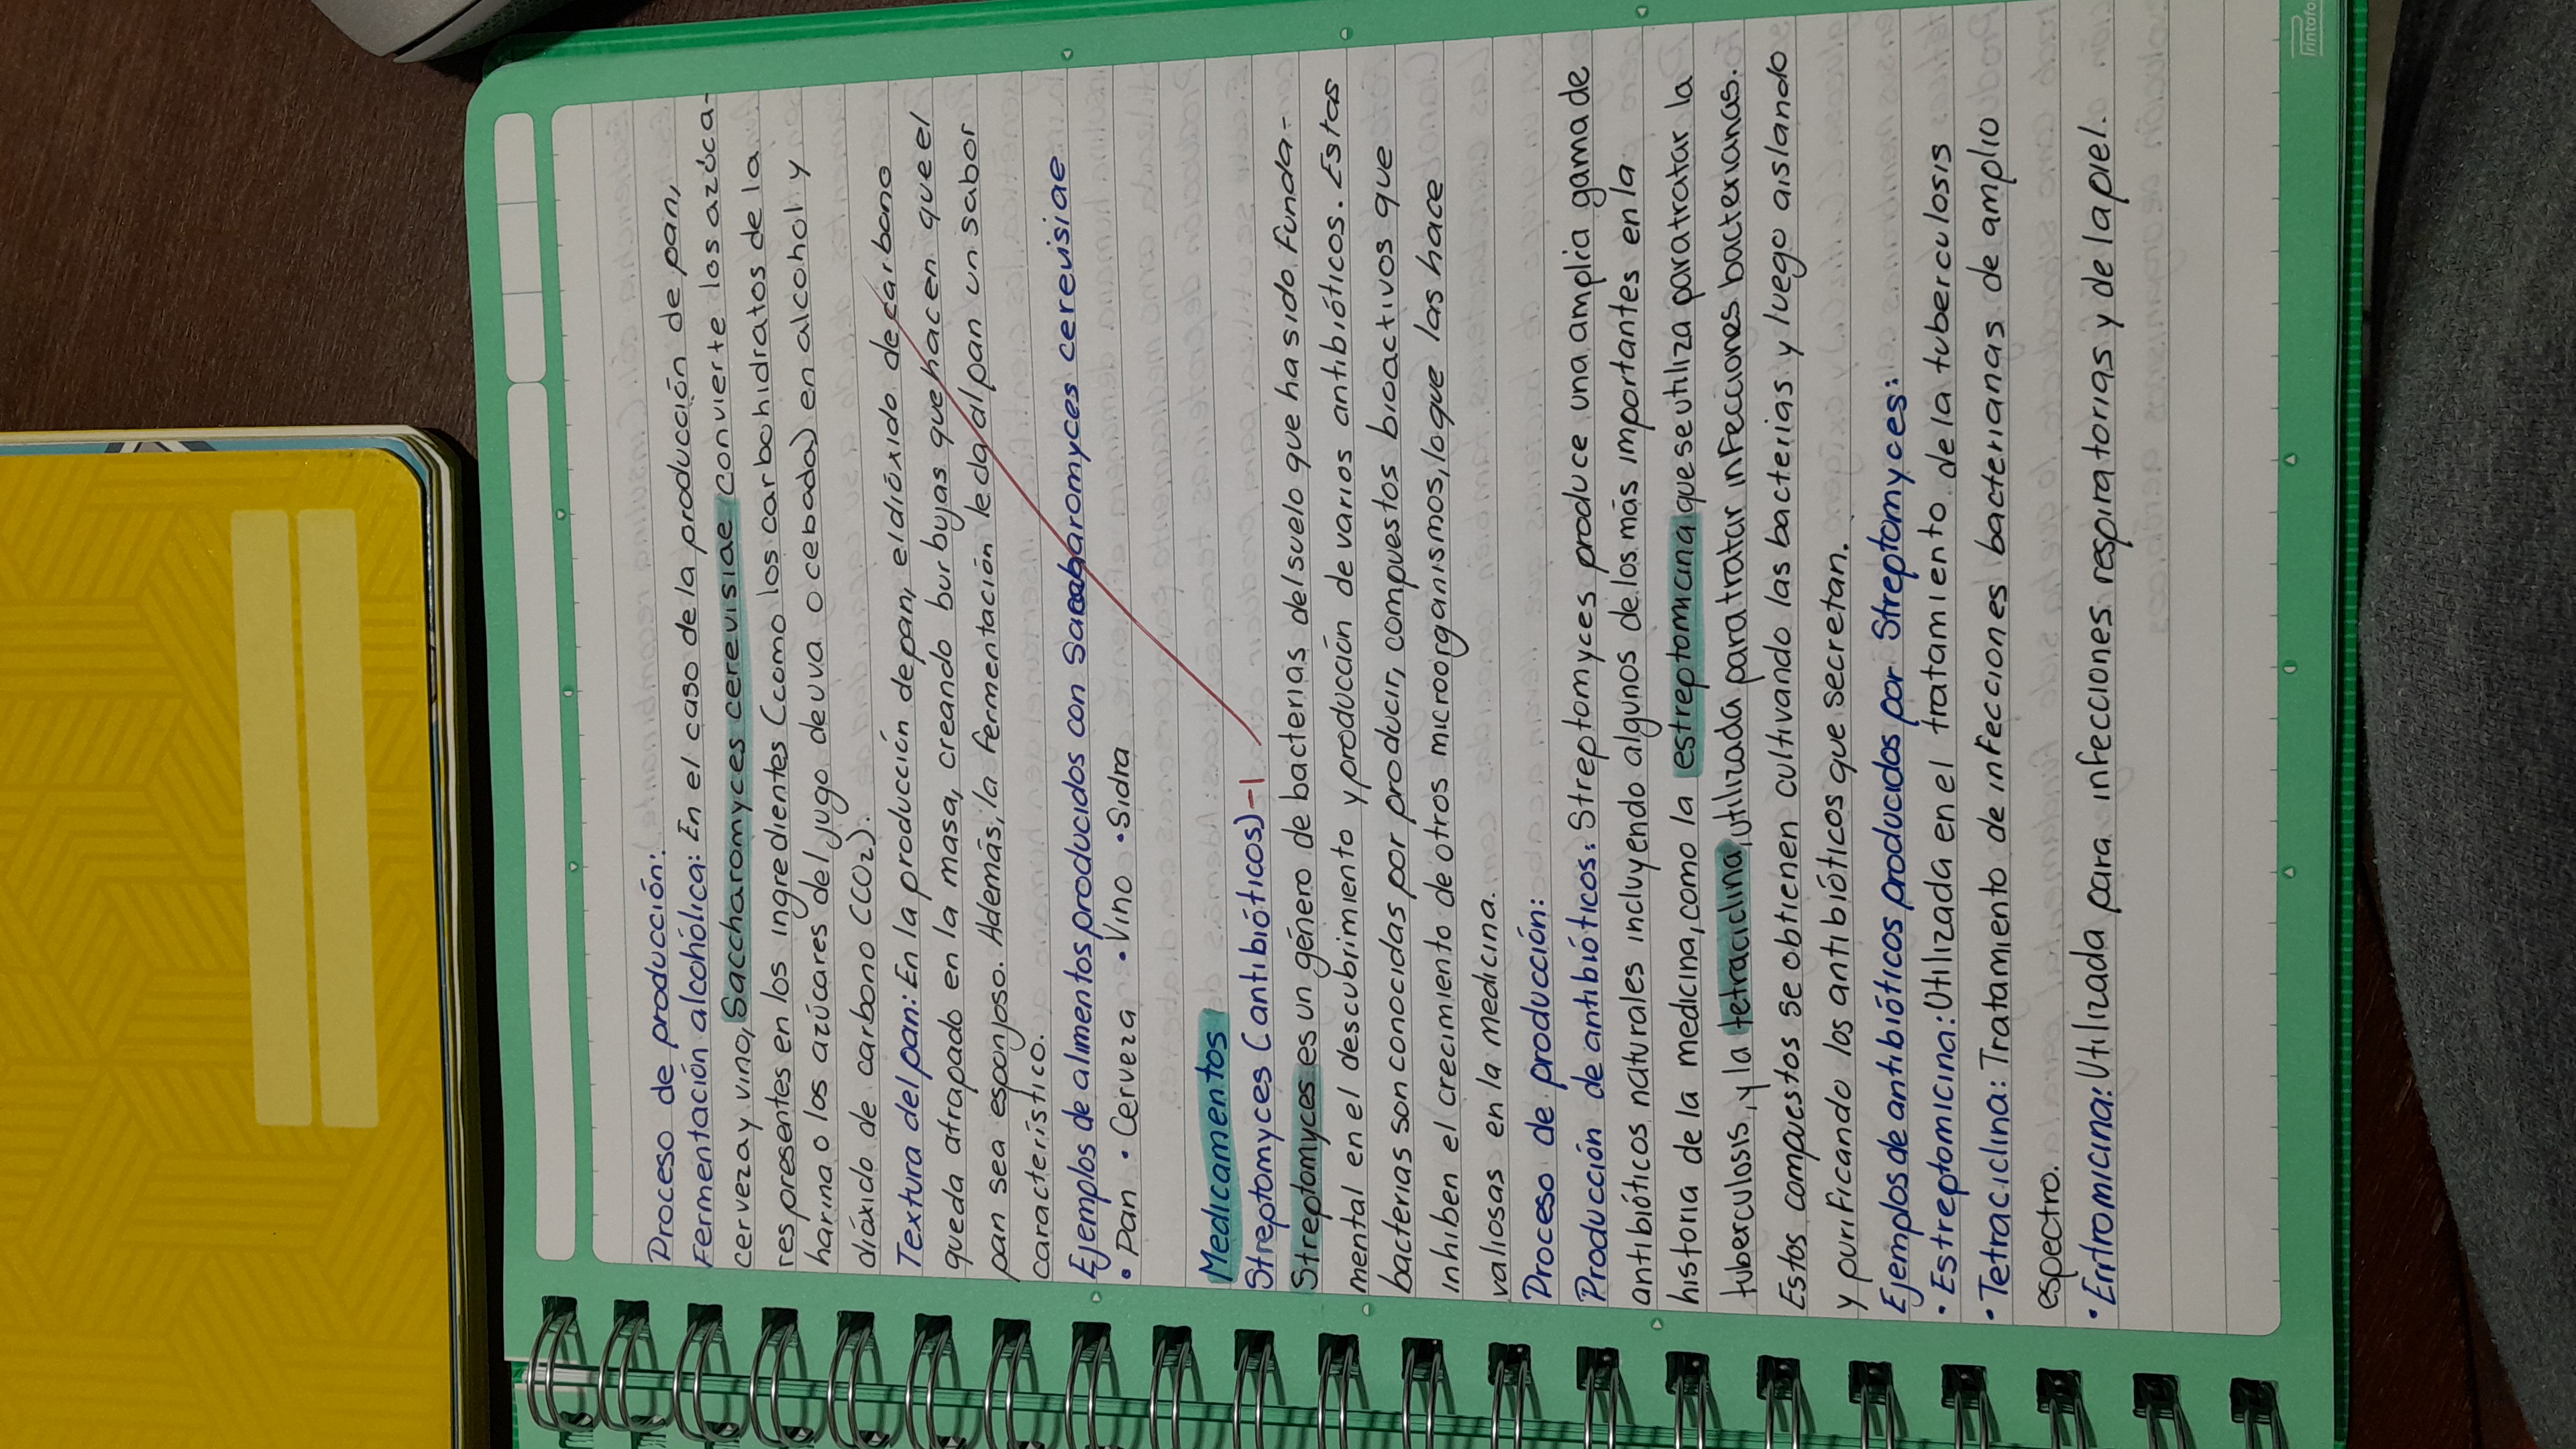 Proceso de producción:
Fermentación alcohólica: En el caso de la producción de pan,
cerveza y vino, Saccharomyces cerevisiae convierte los azúca-
res presentes en los ingredientes (como los carbohidratos de la
harina o los azúcares del jugo de uva o cebada) en alcohol y
dióxido de carbono (CO2).
Textura del pan: En la producción de pan, el dióxido de carbono
queda atrapado en la masa, creando burbujas que hacen que el
pan sea esponjoso. Además, la fermentación le da al pan un sabor
característico.
Ejemplos de alimentos producidos con Saccharomyces cerevisiae
• Pan • Cerveza • Vino • Sidra
Medicamentos
Streptomyces (antibióticos) -1
Streptomyces es un género de bacterias del suelo que ha sido funda-
mental en el descubrimiento y producción de varios antibióticos. Estas
bacterias son conocidas por producir, compuestos bioactivos que
inhiben el crecimiento de otros microorganismos, lo que las hace
valiosas en la medicina.
Proceso de producción:
Producción de antibióticos: Streptomyces produce una amplia gama de
antibióticos naturales incluyendo algunos de los más importantes en la
historia de la medicina, como la estreptomicina que se utiliza para tratar la
tuberculosis, y la tetraciclina, utilizada para tratar infecciones bacterianas.
Estos compuestos se obtienen cultivando las bacterias y luego aislando
y purificando los antibióticos que secretan.
Ejemplos de antibióticos producidos por Streptomyces:
• Estreptomicina: Utilizada en el tratamiento de la tuberculosis
• Tetraciclina: Tratamiento de infecciones bacterianas de amplio
espectro.
• Eritromicina: Utilizada para infecciones respiratorias y de la piel.